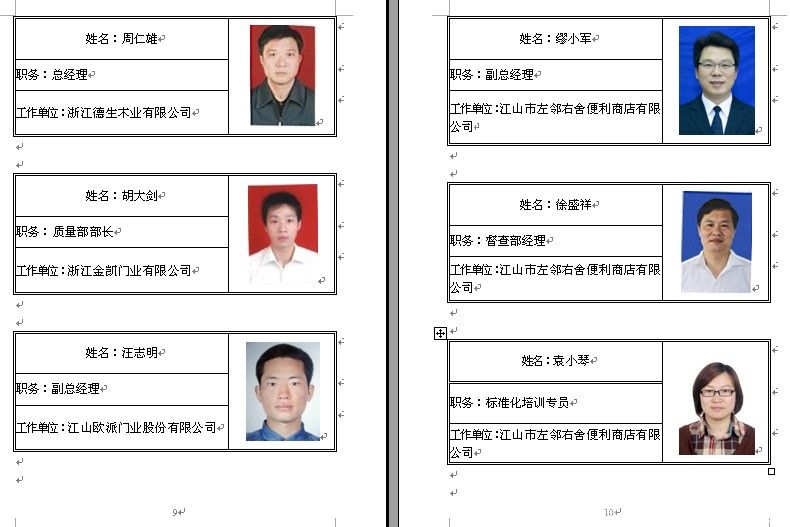 姓名：周仁雄
职务：总经理
工作单位：浙江德生木业有限公司
姓名：胡大剑
职务： 质量部部长
工作单位：浙江金凯门业有限公司
姓名：汪志明
职务：副总经理
工作单位：江山欧派门业股份有限公司
9
姓名：缪小军
职务：副总经理
工作单位：江山市左邻右舍便利商店有限
公司
姓名：徐盛祥
职务：督查部经理
工作单位：江山市左邻右舍便利商店有限
公司
姓名：袁小琴
职务：标准化培训专员
工作单位：江山市左邻右舍便利商店有限
公司
10